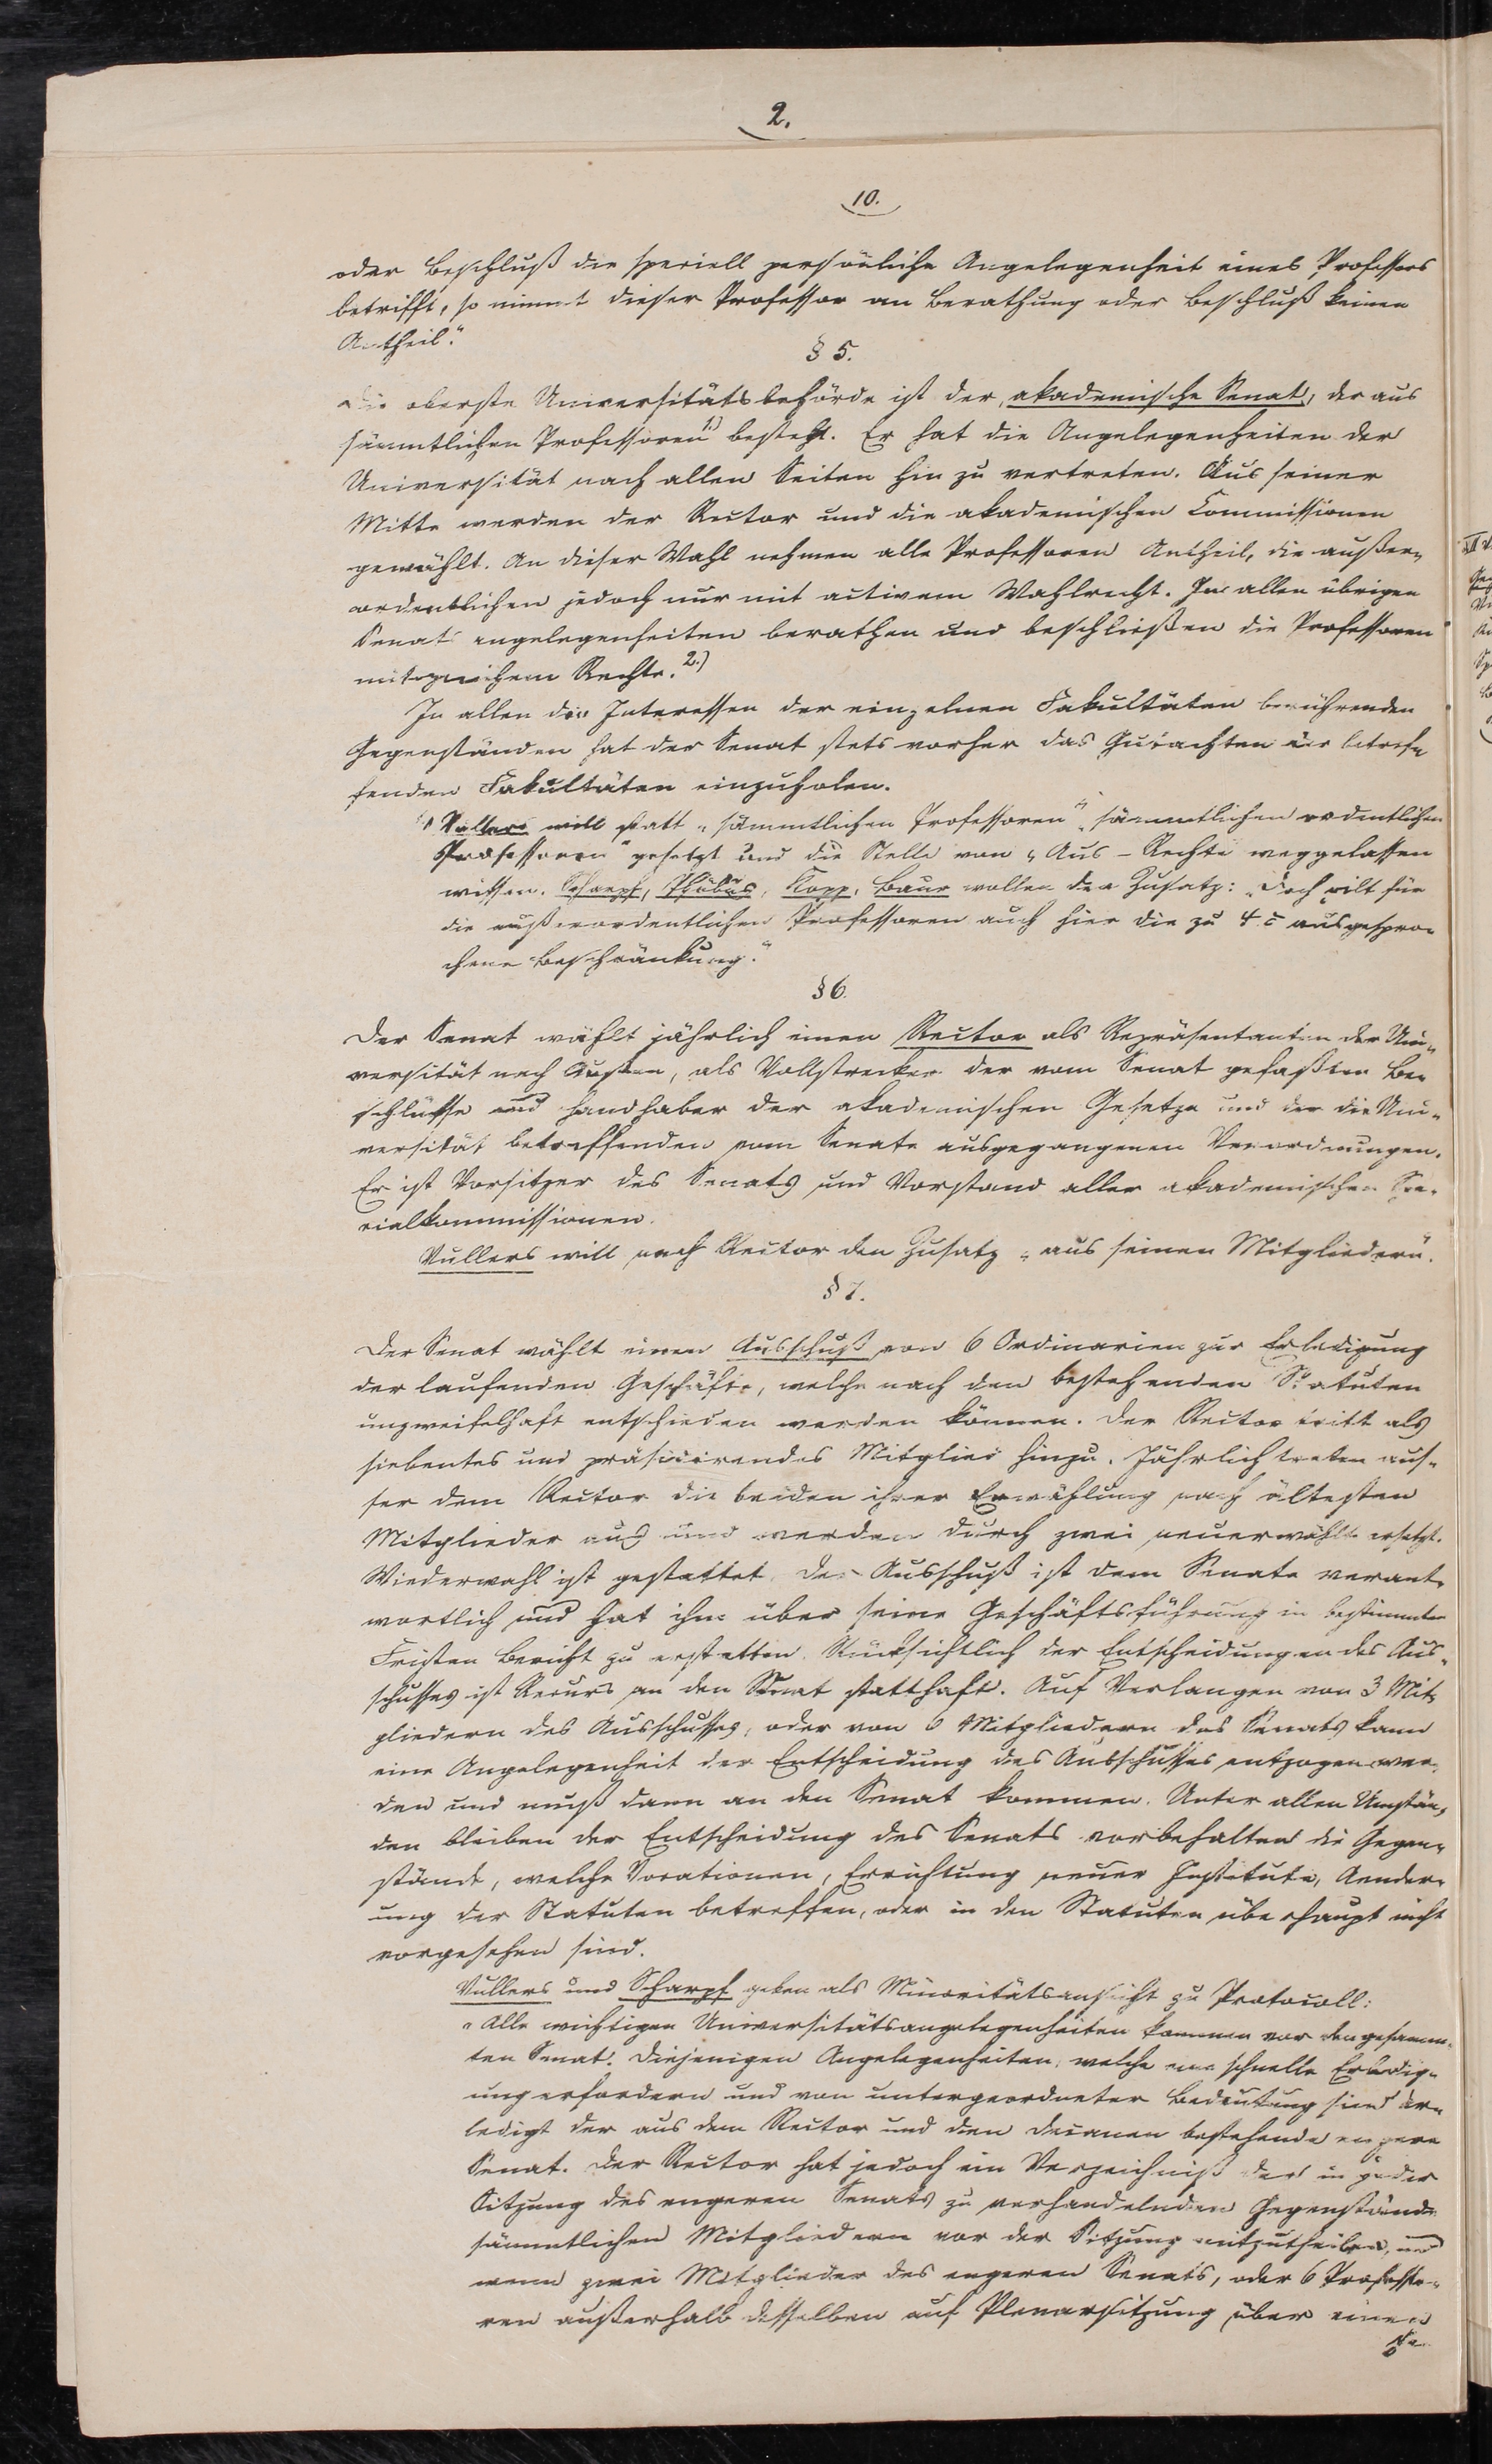 2.
10.
oder Beschluß die speciell persönliche Angelegenheit eines Professors
betrifft, so nimmt dieser Professor an Berathung oder Beschluß keinen
Antheil."
§ 5.
Die oberste Universitätsbehörde ist der akademische Senat, der aus
sämmtlichen Professoren 1.) besteht. Er hat die Angelegenheiten der
Universität nach allen Seiten hin zu vertreten. Aus seiner
Mitte werden der Rector und die akademischen Commissionen
gewählt. An dieser Wahl nehmen alle Professoren Antheil, die außer-
ordentlichen jedoch nur mit activem Wahlrecht. In allen übrigen
Senatsangelegenheiten berathen und beschließen die Professoren
mit gleichem Rechte. 2.)
In allen die Interessen der einzelnen Fakultäten berührenden
Gegenständen hat der Senat stets vorher das Gutachten der betref-
fenden Fakultäten einzuholen.
1) Vullers will statt „sämmtlichen Professoren" „sämmtlichen ordentlichen
Professoren" gesetzt und die Stelle von „Aus – Rechte weggelassen
wissen. Scharpf, Phöbus, Kopp, Baur wollen den Zusatz: „Doch gilt für
die außerordentlichen Professoren auch hier die zu 4 c ausgespro-
chene Beschränkung."
§ 6.
Der Senat wählt jährlich einen Rector als Repräsentanten der Uni-
versität nach Außen, als Vollstrecker der vom Senat gefaßten Be-
schlüsse und Handhaber der akademischen Gesetze und der die Uni-
versität betreffenden vom Senate ausgegangenen Verordnungen.
Er ist Vorsitzer des Senats und Vorstand aller akademischen Spe-
cialkommissionen.
Vullers will nach Rector den Zusatz „aus seinen Mitgliedern".
§ 7.
Der Senat wählt einen Ausschuß von 6 Ordinarien zur Erledigung
der laufenden Geschäfte, welche nach den bestehenden Statuten
unzweifelhaft entschieden werden können. Der Rector tritt als
siebentes und präsidirendes Mitglied hinzu. Jährlich treten aus-
ser dem Rector die beiden ihrer Erwählung nach ältesten
Mitglieder aus und werden durch zwei neuerwählte ersetzt.
Wiederwahl ist gestattet. Der Ausschuß ist dem Senate verant-
wortlich und hat ihm über seine Geschäftsführung in bestimmten
Fristen Bericht zu erstatten. Rücksichtlich der Entscheidungen des Aus-
schusses ist Recurs an den Senat statthaft. Auf Verlangen von 3 Mit-
gliedern des Ausschusses, oder von 6 Mitgliedern des Senats kann
eine Angelegenheit der Entscheidung des Ausschusses entzogen wer-
den und muß dann an den Senat kommen. Unter allen Umstän-
den bleiben der Entscheidung des Senats vorbehalten die Gegen-
stände, welche Vocationen, Errichtung neuer Institute, Aender-
ung der Statuten betreffen, oder in den Statuten überhaupt nicht
vorgesehen sind.
Vullers und Scharpf geben als Minoritätsansicht zu Protocoll:
„Alle wichtigen Universitätsangelegenheiten kommen vor den gesamm-
ten Senat. Diejenigen Angelegenheiten, welche eine schnelle Erledig-
ung erfordern und von untergeordneter Bedeutung sind er-
ledigt der aus dem Rector und den Decanen bestehende engere
Senat. Der Rector hat jedoch ein Verzeichniß der in jeder
Sitzung des engeren Senats zu verhandelnden Gegenstände
sämmtlichen Mitgliedern vor der Sitzung mitzutheilen, und
wenn zwei Mitglieder des engeren Senats, oder 6 Professo-
ren außerhalb desselben auf Plenarsitzung über einen